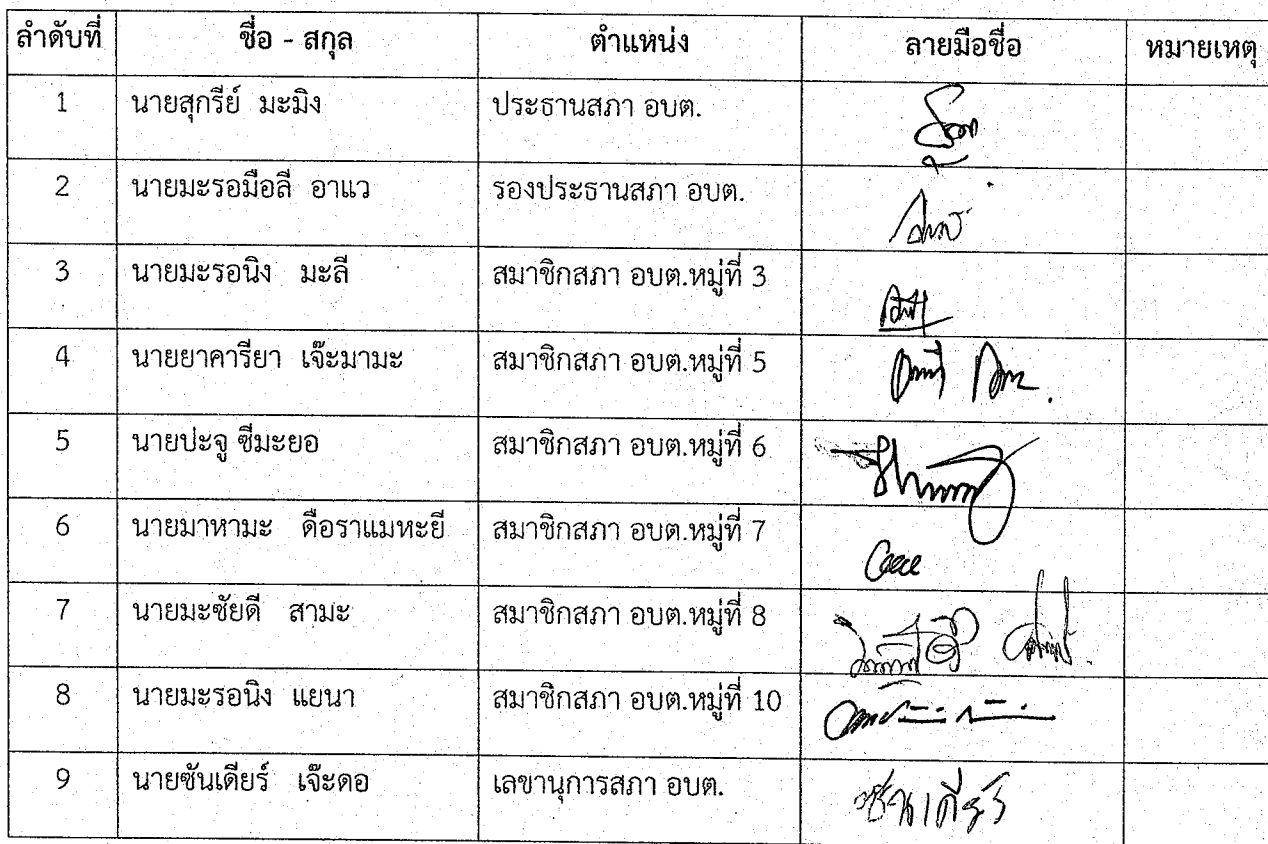 ลำดับที่ ชื่อ - สกุล ตำแหน่ง ลายมือชื่อ หมายเหตุ
1 นายสุกรีย์ มะมิง ประธานสภา อบต.
2 นายมะรอมือลี อาแว รองประธานสภา อบต.
3 นายมะรอนิง มะลี สมาชิกสภา อบต.หมู่ที่ 3
4 นายยาคารียา เจ๊ะมามะ สมาชิกสภา อบต.หมู่ที่ 5
5 นายปะจู ซีมะยอ สมาชิกสภา อบต.หมู่ที่ 6
6 นายมาหามะ ดือราแมหะยี สมาชิกสภา อบต.หมู่ที่ 7
7 นายมะซัยดี สามะ สมาชิกสภา อบต.หมู่ที่ 8
8 นายมะรอนิง แยนา สมาชิกสภา อบต.หมู่ที่ 10
9 นายซันเดียร์ เจ๊ะดอ เลขานุการสภา อบต. ซันเดียร์